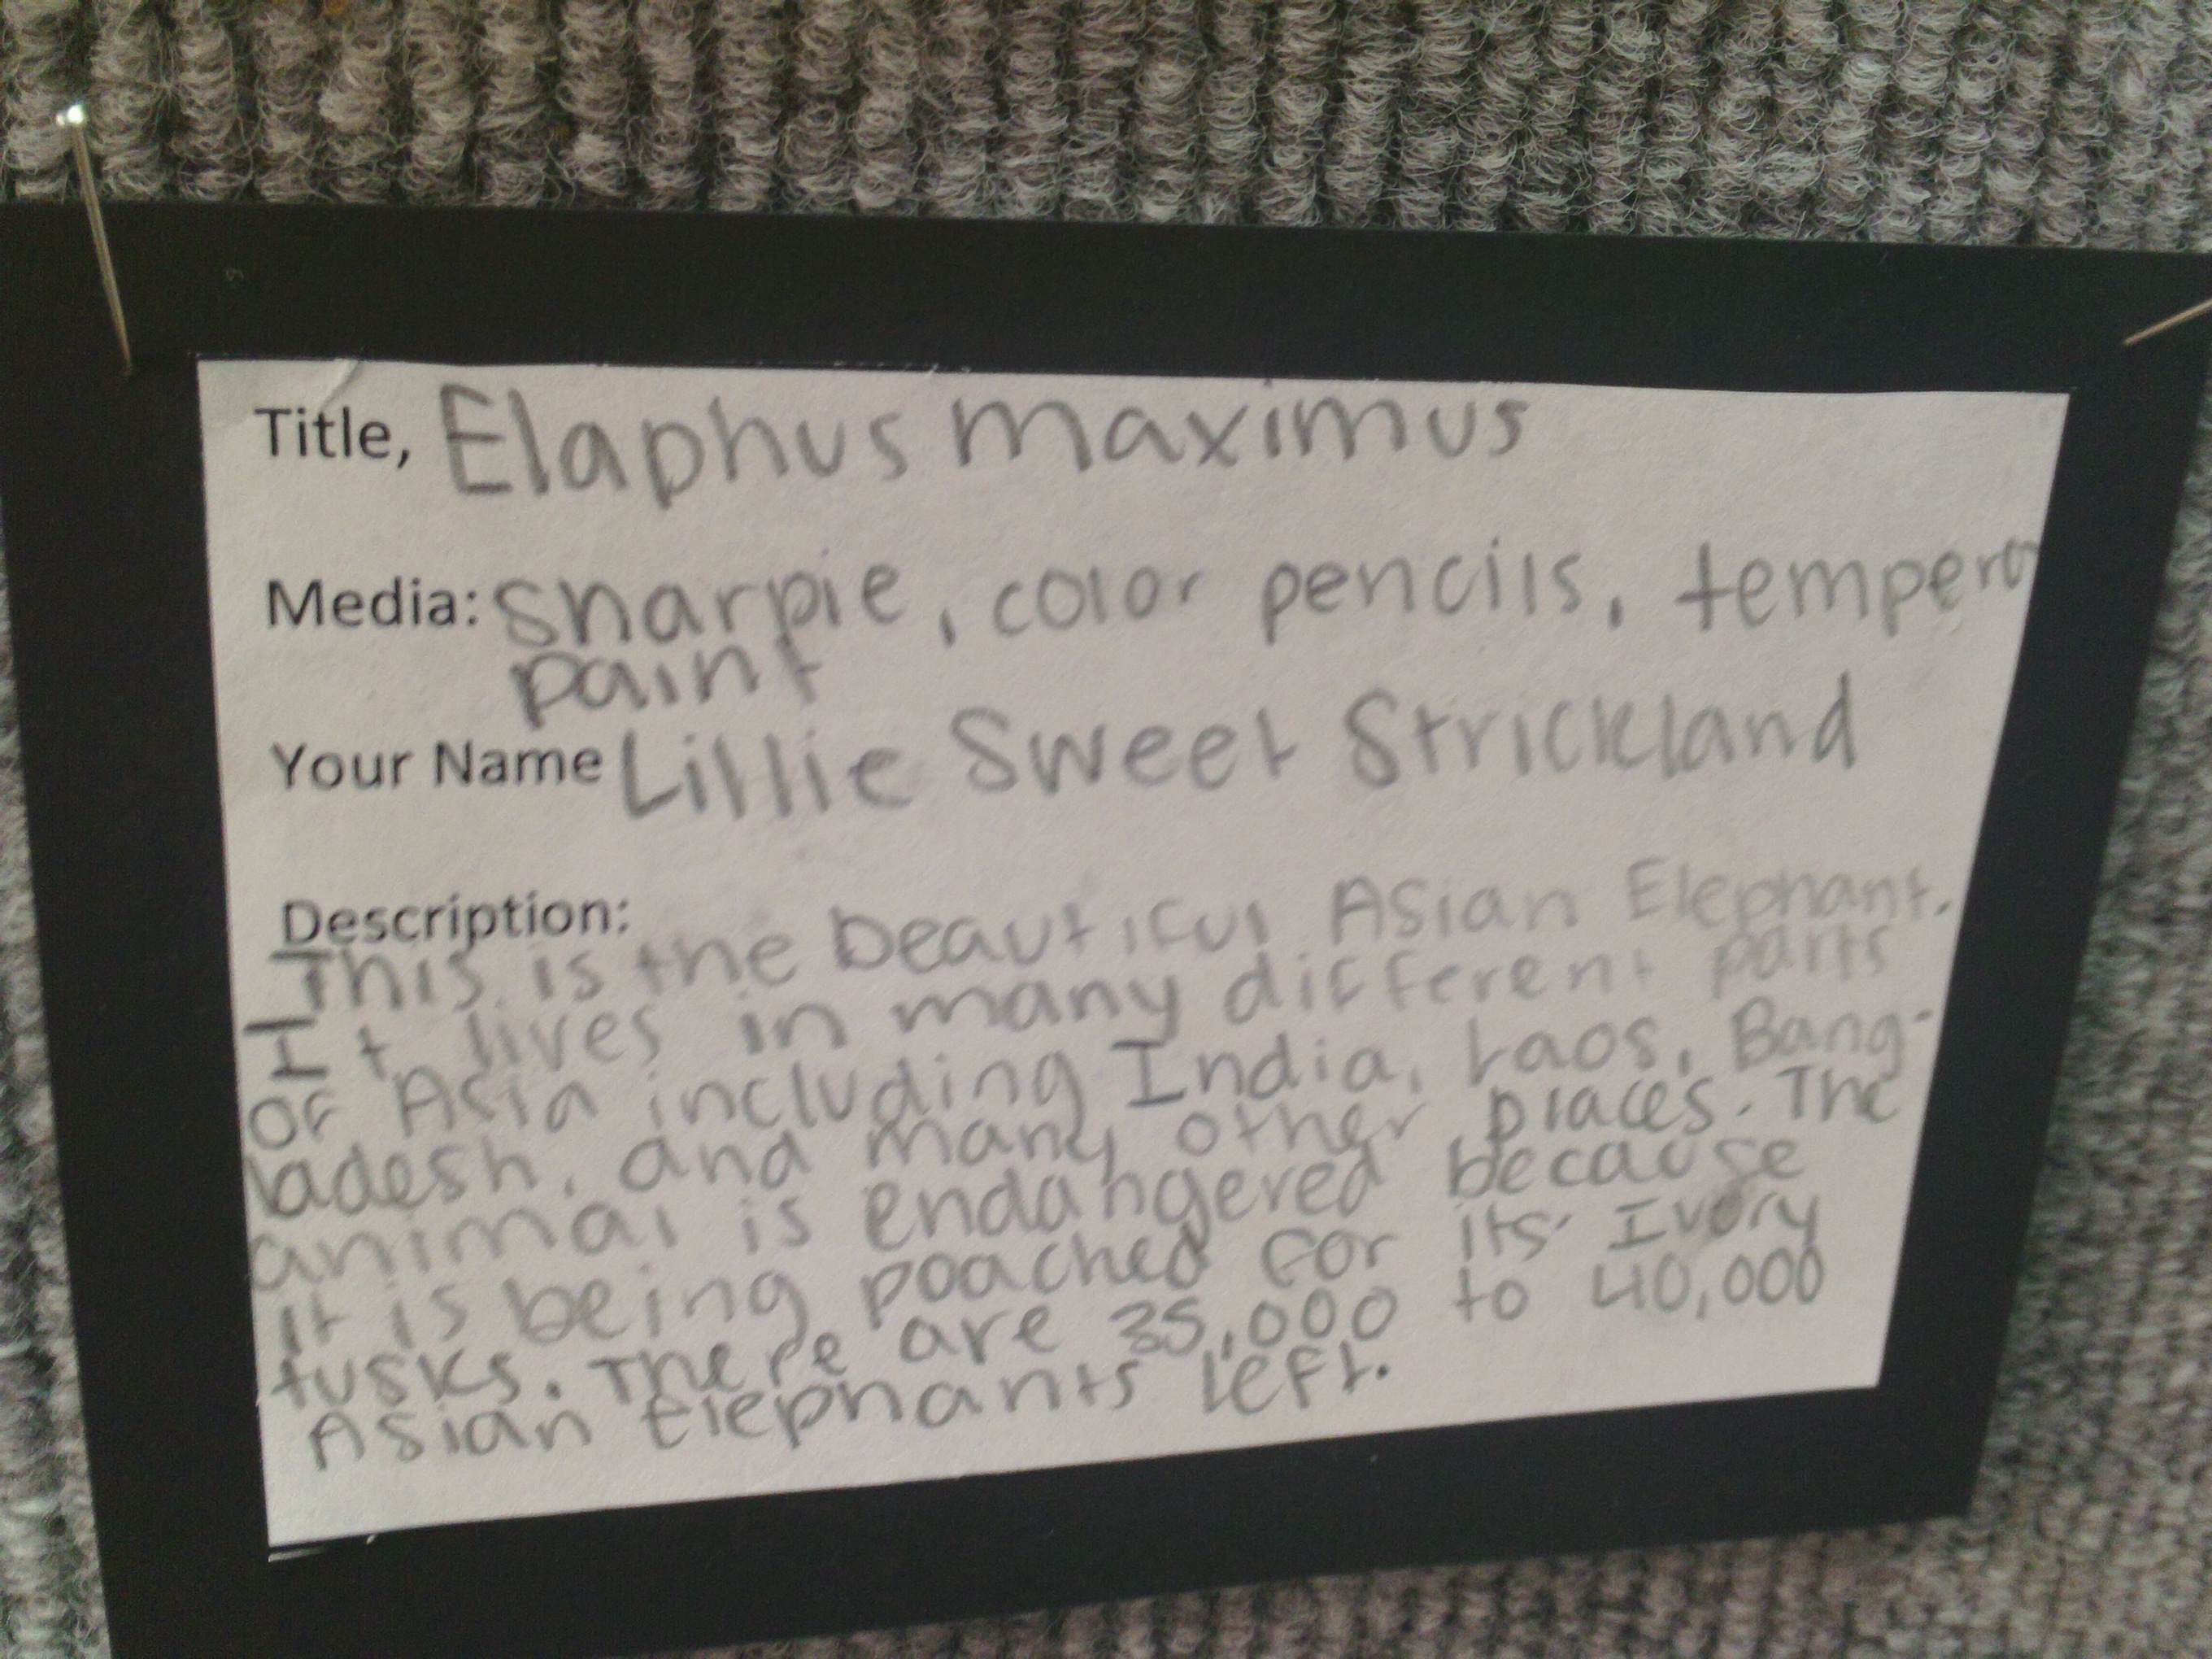 Title, Elaphus maximus
Media: Sharpie, color pencils, tempera
paint
Your Name Lillie Sweet Strickland
Description:
This is the beautiful Asian Elephant.
It lives in many different parts
of Asia including India, Laos, Bang-
ladesh, and many other places. The
animal is endangered because
it is being poached for its' Ivory
tusks. There are 35,000 to 40,000
Asian Elephants left.